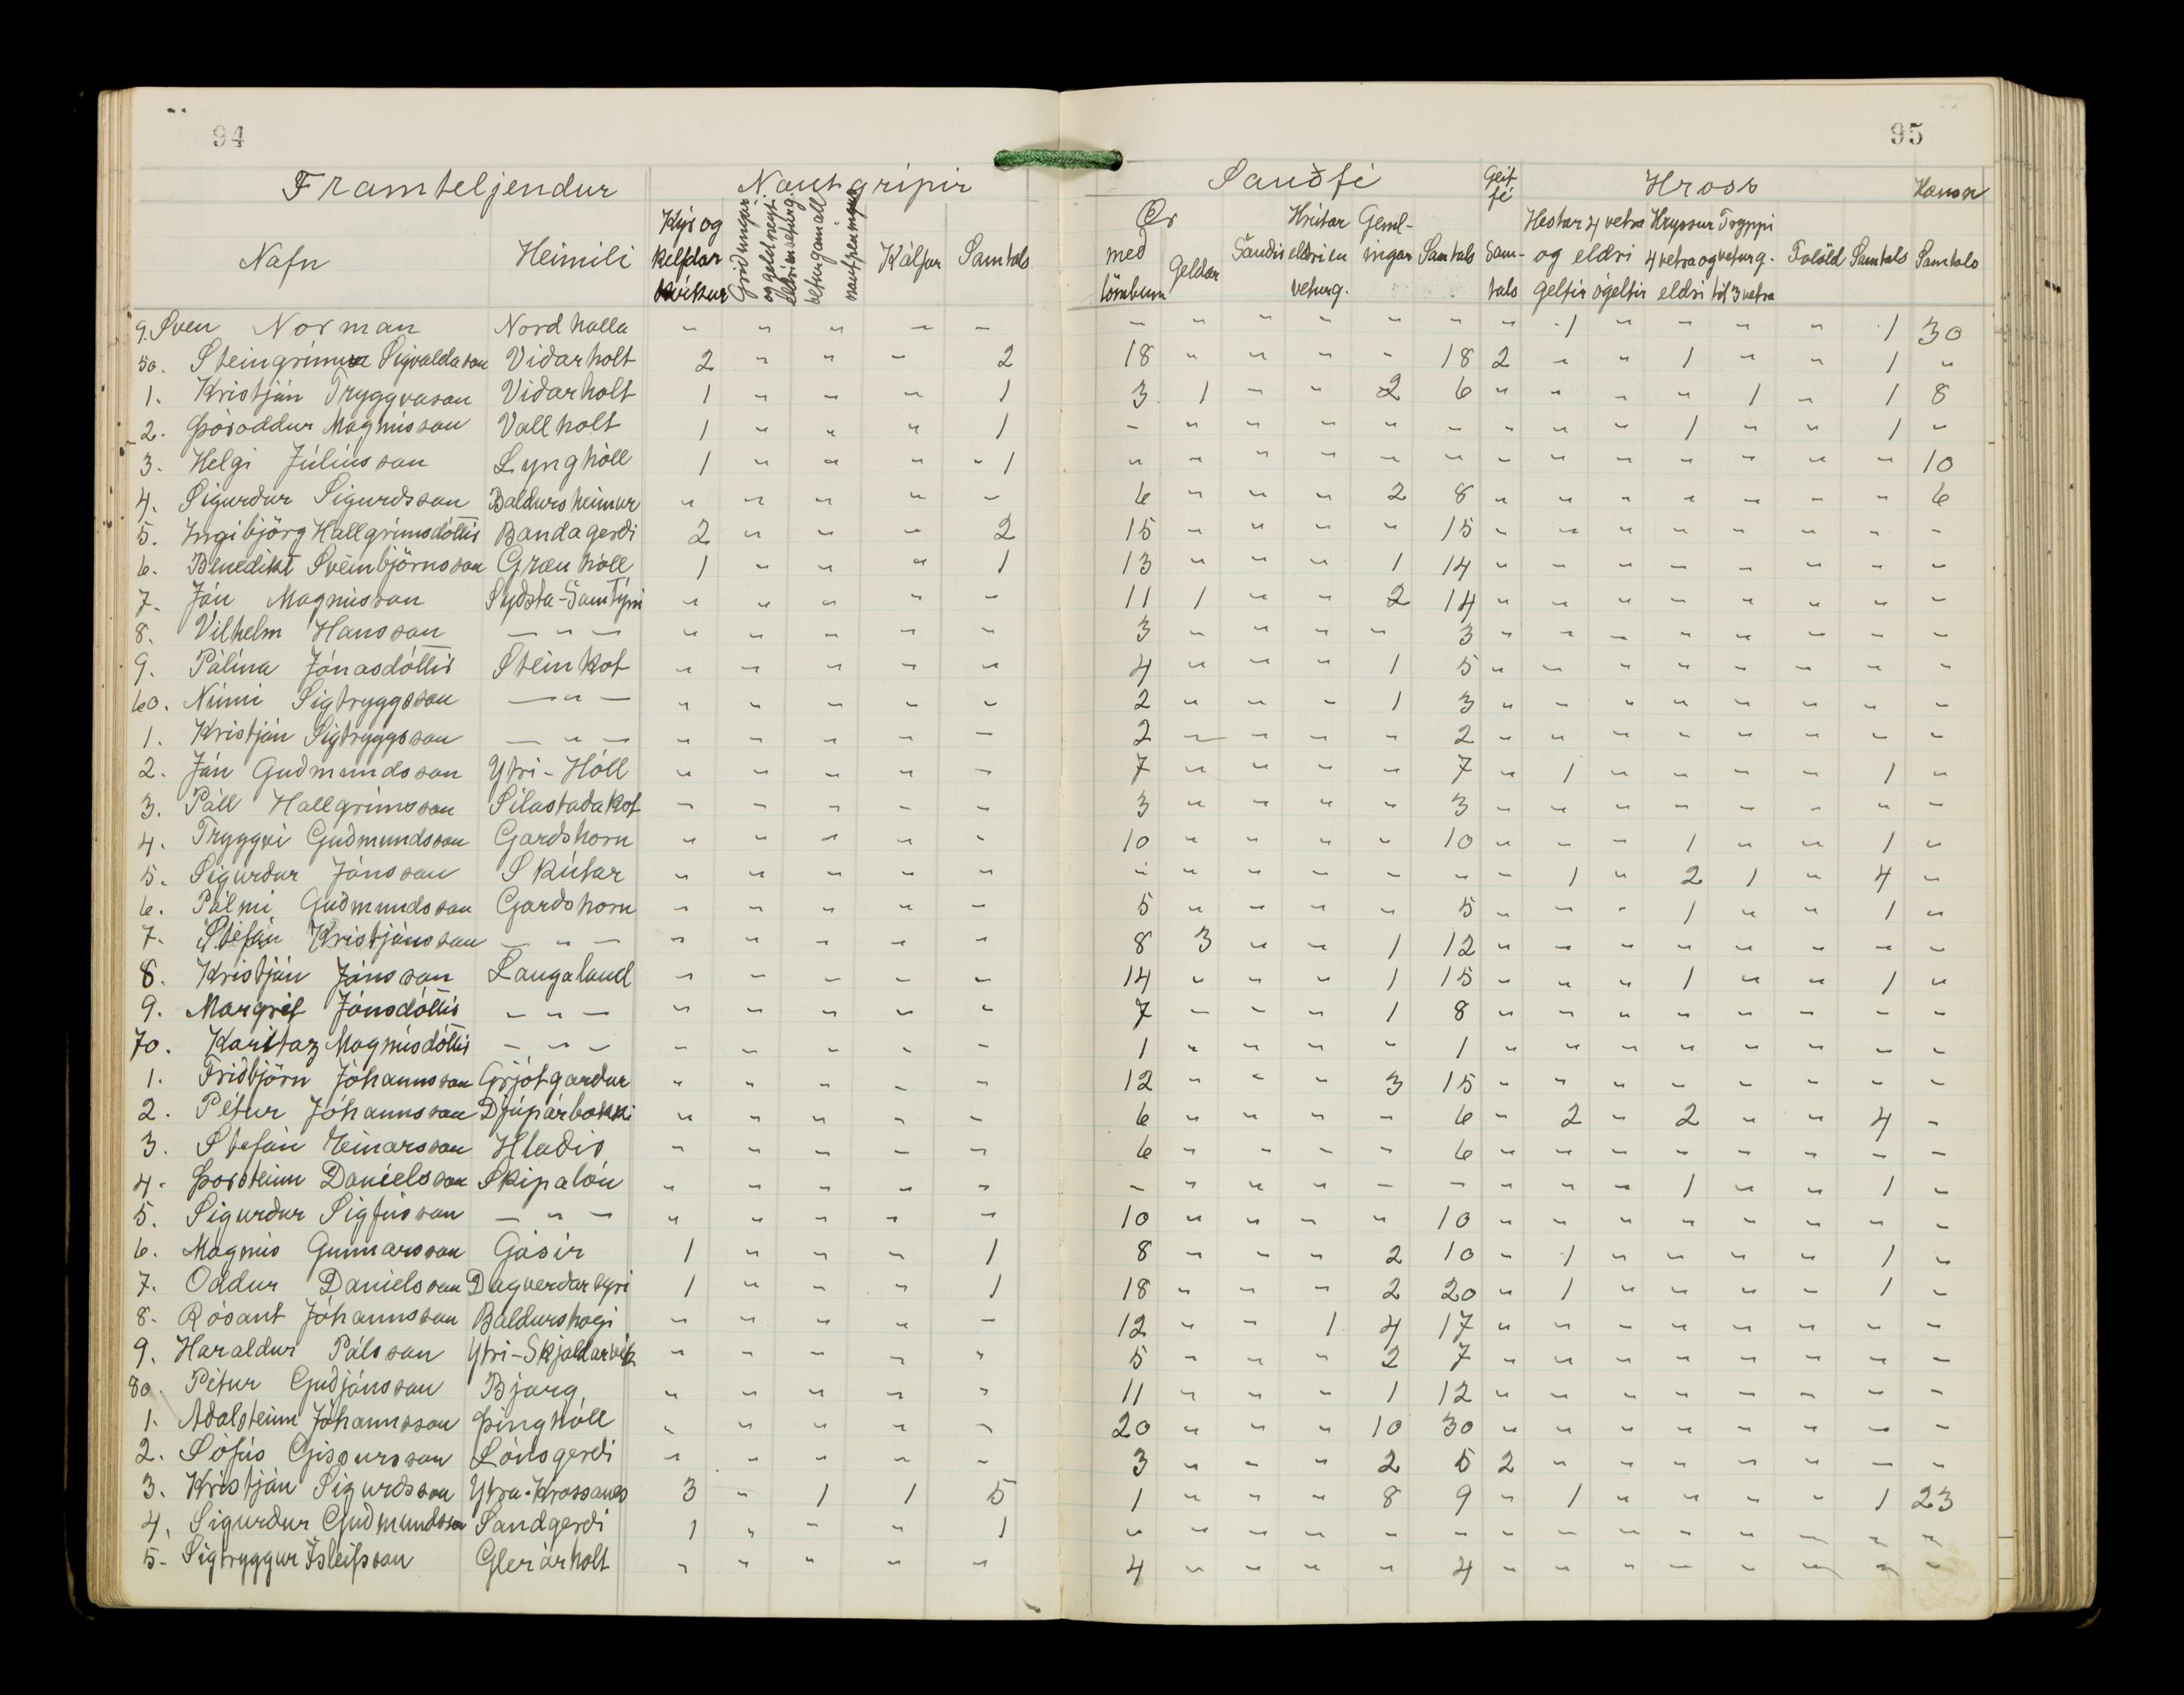 94
95
Framteljendur Nautgripir Sauðfé Geitfé Hross Hænsn
Nafn Heimili Kýr og kelfdar kvíkur Griðungar og geldneyti eldri en veturg. veturgamall nautpeningur Kálfar Samtals Ær með lömbum Geldar Sauðir Hrútar eldri en veturg. Gemlingar Samtals Samtals Hestar 4 vetra og eldri geltir ógeltir Hryssur 4 vetra og eldri Tryppi veturg. til 3 vetra Folöld Samtals Samtals
9. Sven Norman Nordhalla " " " — — — " " " " " " " 1 " " " " 1 30
50. Steingrímur Sigvaldason Viðarholt 2 " " — 2 18 " " " - 18 2 " " 1 " " 1 "
1. Kristján Tryggvason Viðarholt 1 " " " 1 3 1 " " 2 6 " " " " 1 " 1 8
2. Þóroddur Magnússon Vallholt 1 " " " 1 - " " " " " " " " 1 " " 1 "
3. Helgi Júlíusson Lynghóll 1 " " " 1 " " " " " " " " " " " " " 10
4. Sigurður Sigurdsson Baldursheimur " " " " — 6 " " " 2 8 " " " " " " " 6
5. Ingibjörg Hallgrímsdóttir Bandagerði 2 " " " 2 15 " " " " 15 " " " " " " " "
6. Benedikt Sveinbjörnsson Grænhóll 1 " " " 1 13 " " " 1 14 " " " " " " " "
7. Jón Magnússon Syðsta-Samtýni " " " " " 11 1 " " 2 14 " " " " " " " "
8. Vilhelm Hansson — " — " " " " " 3 " " " " 3 " " " " " " " "
9. Pálína Jónasdóttir Steinkot " " " " " 4 " " " 1 5 " " " " " " " "
60. Númi Sigtryggsson — " — " " " " " 2 " " " 1 3 " " " " " " " "
1. Kristján Sigtryggsson — " — " " " " " 2 " " " " 2 " " " " " " " "
2. Jón Guðmundsson Ytri-Hóll " " " " " 7 " " " " 7 " 1 " " " " 1 "
3. Páll Hallgrímsson Sílastaðakot " " " " " 3 " " " " 3 " " " " " " " "
4. Tryggvi Guðmundsson Garðshorn " " " " " 10 " " " " 10 " " " 1 " " 1 "
5. Sigurður Jónsson Skútar " " " " " " " " " " " " 1 " 2 1 " 4 "
6. Pálmi Guðmundsson Garðshorn " " " " " 5 " " " " 5 " " " 1 " " 1 "
7. Stefán Kristjánsson — " — " " " " " 8 3 " " 1 12 " " " " " " " "
8. Kristján Jónsson Laugaland " " " " " 14 " " " 1 15 " " " 1 " " 1 "
9. Margrét Jónsdóttir — " — " " " " " 7 " " " 1 8 " " " " " " " "
70. Karitaz Magnúsdóttir — " — " " " " " 1 " " " " 1 " " " " " " " "
1. Friðbjörn Jóhannsson Grjótgarður " " " " " 12 " " " 3 15 " " " " " " " "
2. Pétur Jóhannsson Djúpárbakki " " " " " 6 " " " " 6 " 2 " 2 " " 4 "
3. Stefán Einarsson Hlaðir " " " " " 6 " " " " 6 " " " " " " " "
4. Þorsteinn Daníelsson Skipalón " " " " " " " " " " " " " " 1 " " 1 "
5. Sigurður Sigfússon — " — " " " " " 10 " " " " 10 " " " " " " " "
6. Magnús Gunnarsson Gásir 1 " " " 1 8 " " " 2 10 " 1 " " " " 1 "
7. Oddur Daníelsson Dagverðareyri 1 " " " 1 18 " " " 2 20 " 1 " " " " 1 "
8. Rósant Jóhannsson Baldurshagi " " " " " 12 " " 1 4 17 " " " " " " " "
9. Haraldur Pálsson Ytri-Skjaldarvík " " " " " 5 " " " 2 7 " " " " " " " "
80. Pétur Guðjónsson Bjarg " " " " " 11 " " " 1 12 " " " " " " " "
1. Aðalsteinn Jóhannsson Þinghóll " " " " " 20 " " " 10 30 " " " " " " " "
2. Sófús Gissursson Lónsgerði " " " " " 3 " " " 2 5 2 " " " " " " "
3. Kristján Sigurðsson Ytra-Krossanes 3 " 1 1 5 1 " " " 8 9 " 1 " " " " 1 23
4. Sigurður Guðmundsson Sandgerði 1 " " " 1 " " " " " " " " " " " " " "
5. Sigtryggur Ísleifsson Glerárholt " " " " " 4 " " " " 4 " " " " " " " "